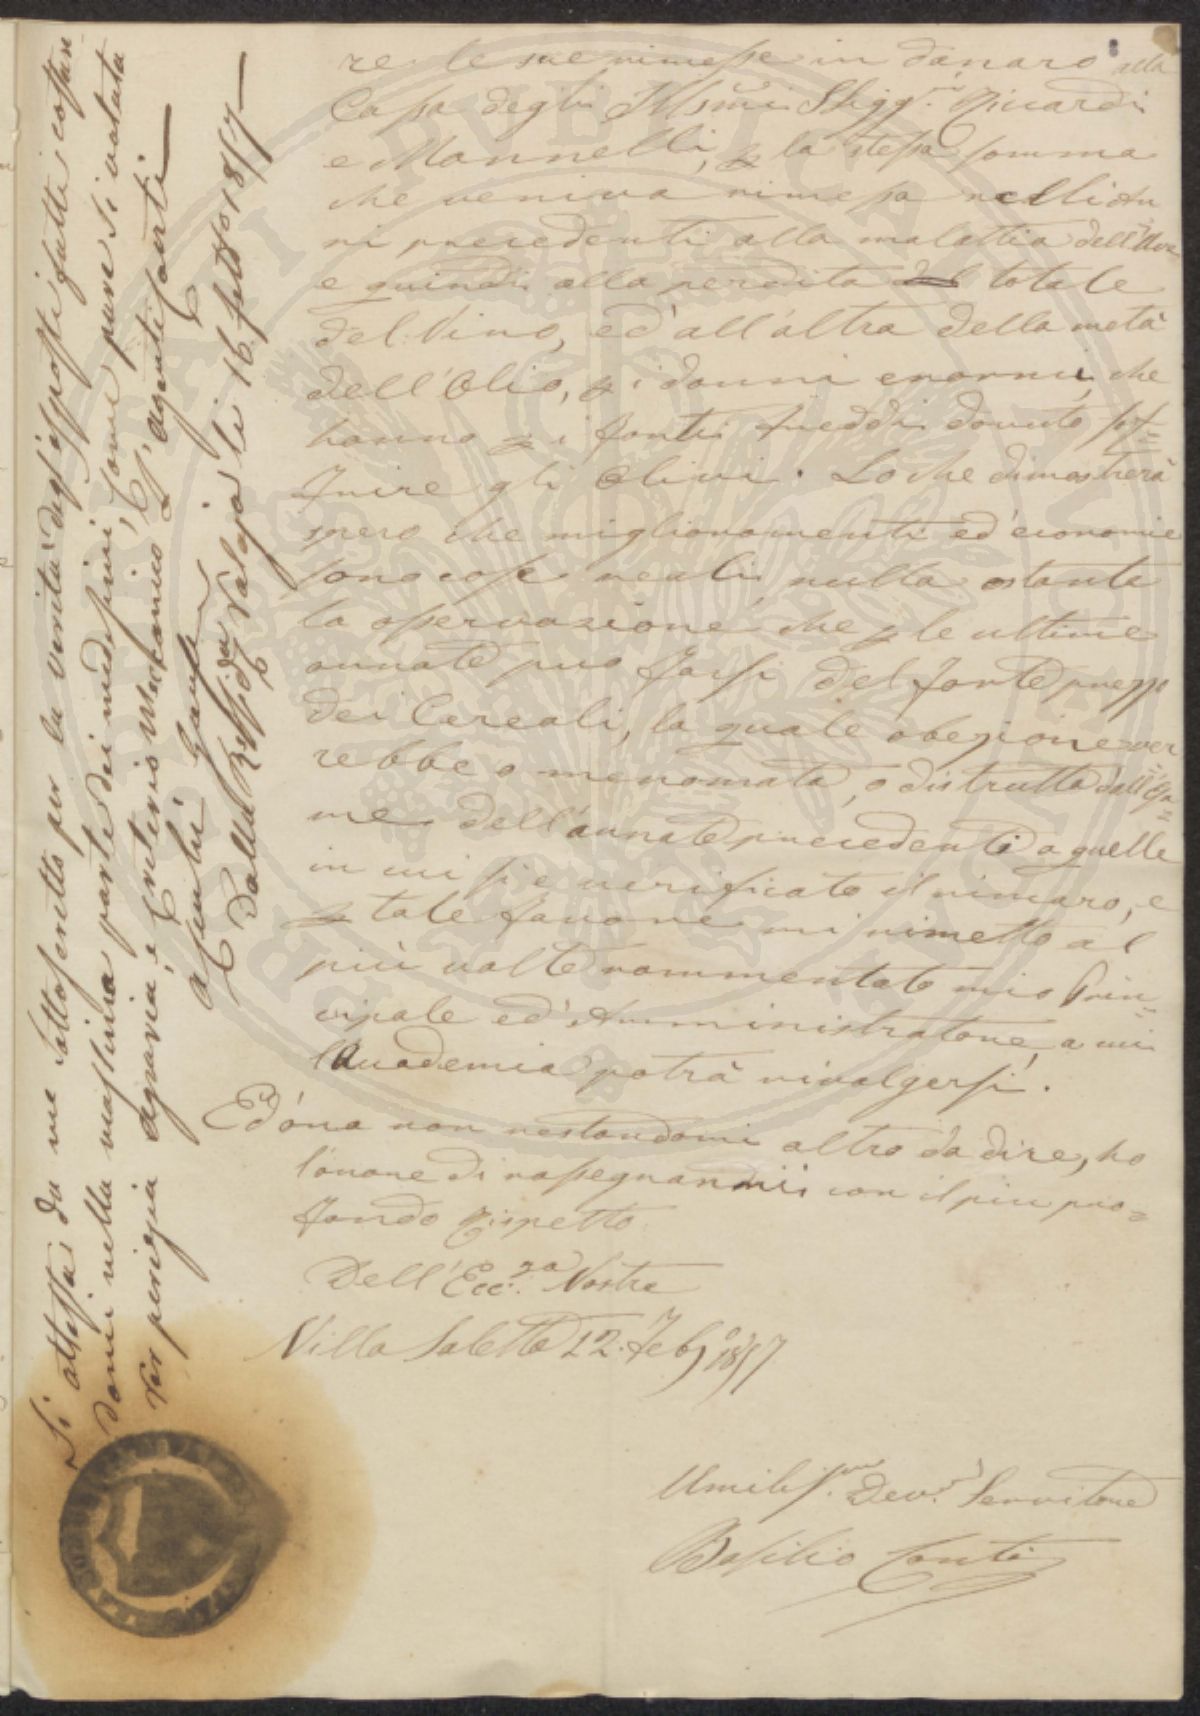 re le sue rimesse in danaro alla
Cassa degli Ill.smi Sigg.ri Riccardi
e Mannelli, p la stessa somma
che veniva rimessa nelli An
ni precedenti alla malattia dell'Uva
e quindi alla perdita totale
del Vino, ed all'altra della metà
dell'Olio, p i danni enormi, che
hanno p i forti freddi dovuto sof=
frire gli Olivi. Lo che dimostrerà
spero che miglioramenti ed economie
sono cose reali, nulla ostante
la osservazione che p le ultime
annate può farsi del forte prezzo
dei Cereali, la quale obezione ver
rebbe o menomata, o distrutta dall'Esa=
me dell'annate precedenti a quelle
in cui si è verificato il rincaro, e
p tale favore mi rimetto al
più volte rammentato mio Prin=
cipale ed Amministratore, a cui
l'Accademia potrà rivolgersi.
Ed ora non restandomi altro da dire, ho
l'onore di rassegnarmi con il più pro=
fondo rispetto
Dell'Ecc.za Vostra
Villa Saletta 12. Feb.o 1857
Umiliss.mo Dev. Servitore
Basilio Conti
Si attesta da me sottoscritto per la verità degl'esposti fatti costan
domi nella massima parte dei medesimi, come pure si valuta
per perizia agraria, e criterio economico L'agente Conti
Dalla Valoja li 16. febb.o 1857